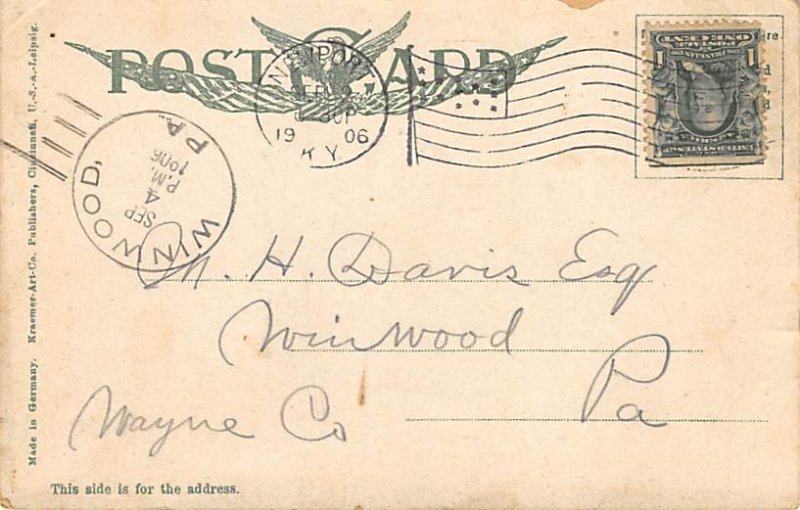 POST CARD
NEWPORT
SEP
30P
1906
KY.
ONE CENT
1
1
WINWOOD, PA.
SEP
4
P.M.
1906
M. H. Davis Esq
Winwood
Pa
Wayne Co
This side is for the address.
Made in Germany. Kraemer-Art-Co. Publishers, Cincinnati, U.-S.-a.-Leipsig.